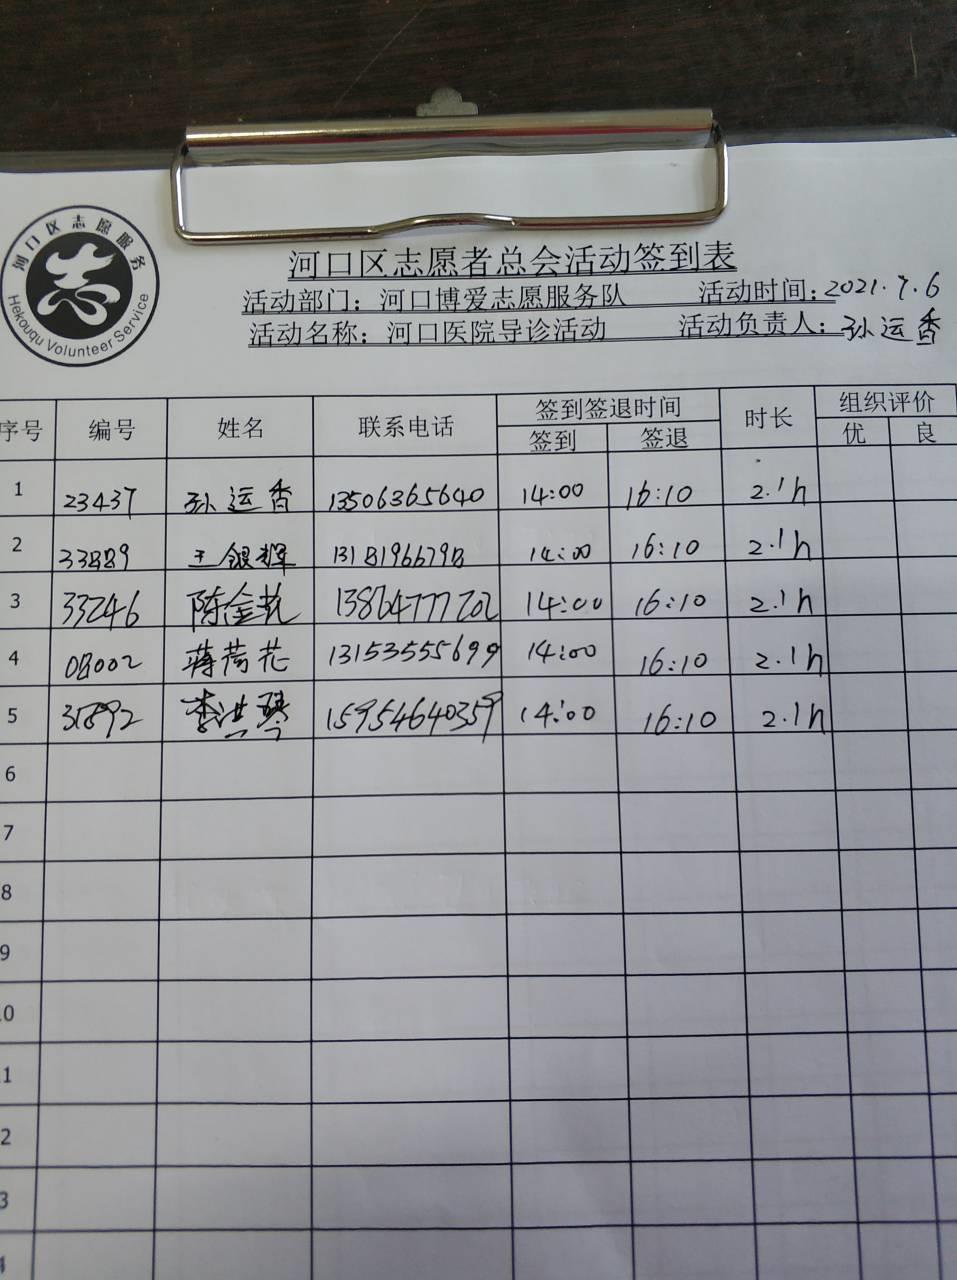 河口区志愿服务
志
Hekouqu Volunteer Service
河口区志愿者总会活动签到表
活动部门：河口博爱志愿服务队 活动时间：2021.7.6
活动名称：河口医院导诊活动 活动负责人：孙运香
序号 编号 姓名 联系电话 签到签退时间 时长 组织评价
签到 签退 优 良
1 23437 孙运香 13506365640 14:00 16:10 2.1h
2 33889 王银辉 14:00 16:10 2.1h
3 33246 陈金 14:00 16:10 2.1h
4 08002 蒋荷花 13153555699 14:00 16:10 2.1h
5 李洪琴 15954640359 14:00 16:10 2.1h
6
7
8
9
0
1
2
3
4